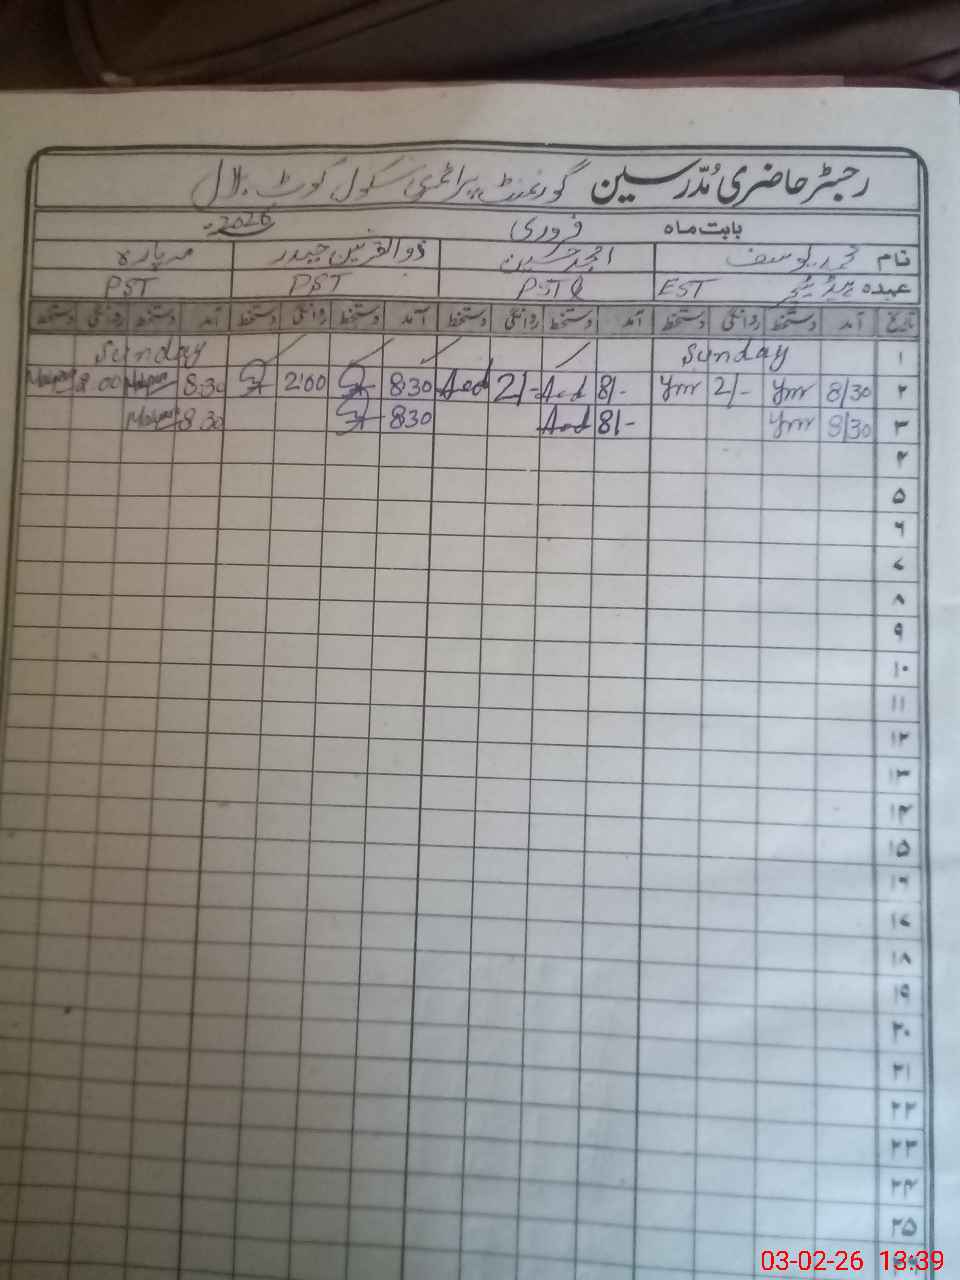 رجسٹر حاضری مُدّرسین گورنمنٹ پرائمری سکول کوٹ بلال
بابت ماہ فروری 2026
نام محمد یوسف امجد حسین ذوالقرنین حیدر مہ پارہ
عہدہ EST PST PST PST
تاریخ آمد دستخط روانگی دستخط آمد دستخط روانگی دستخط آمد دستخط روانگی دستخط آمد دستخط روانگی دستخط
۱ Sunday Sunday
۲ 8/30 Ymr 2/- Ymr 8/- Aed 2/- Aed 8:30 2:00 8:30 2:00
۳ 8/30 Ymr 8/- Aed 8:30 8:30
۴
۵
۶
۷
۸
۹
۱۰
۱۱
۱۲
۱۳
۱۴
۱۵
۱۶
۱۷
۱۸
۱۹
۲۰
۲۱
۲۲
۲۳
۲۴
۲۵
03-02-26 13:39